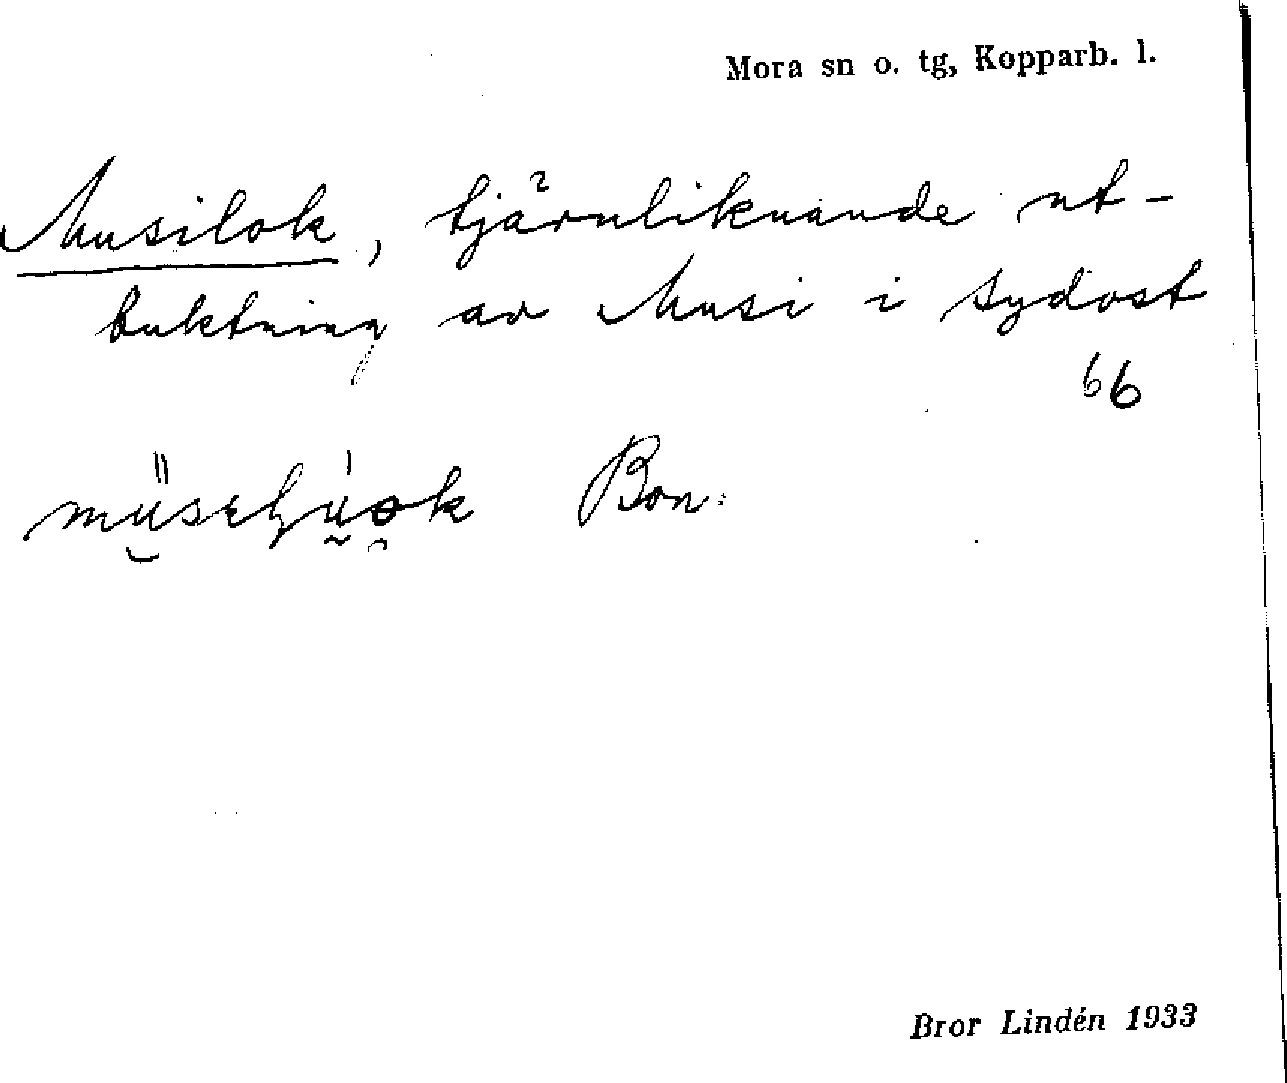 Mora sn o. tg, Kopparb. l.
Musilok, tjärnliknande ut-
buktning av Musi i sydost
66
Bon.
Bror Lindén 1933